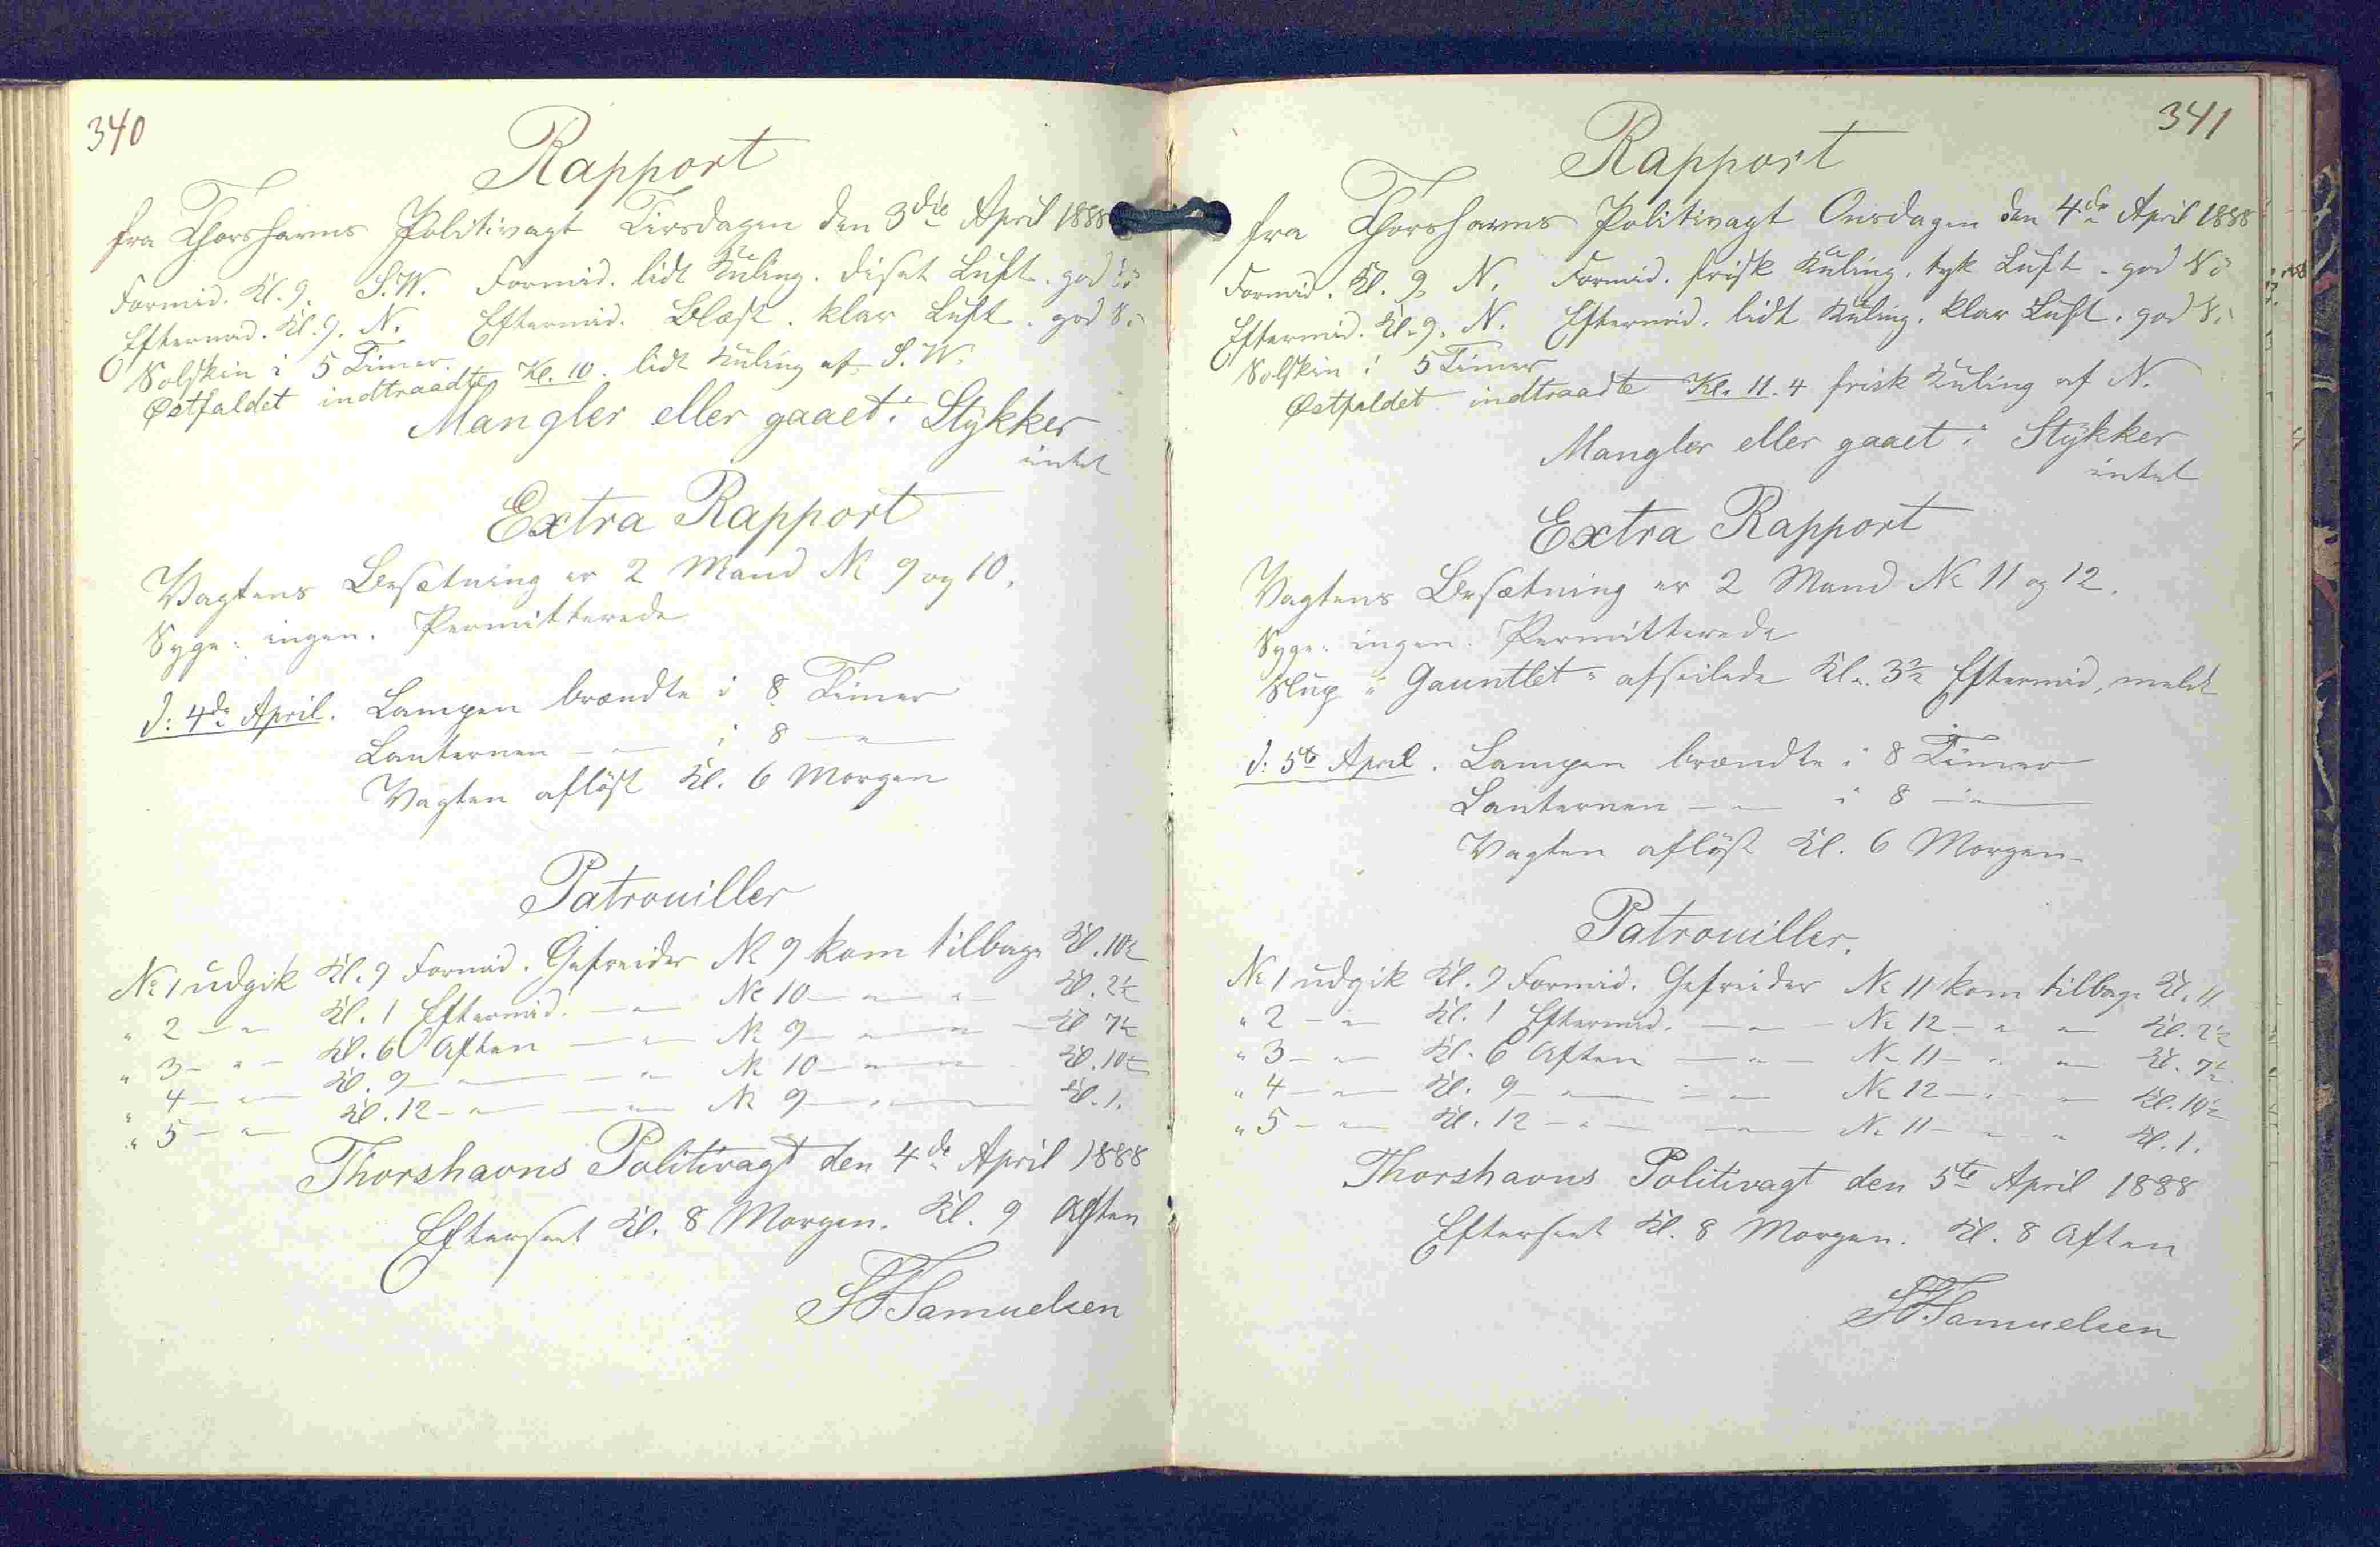 340
Rapport
fra Thorshavns Politivagt Tirsdagen den 3die April 1888
Formid. Kl. 9. S.W. Formid. lidt Kuling. diset Luft. god
Eftermid. Kl. 9. N. Eftermid. Blæst. klar Luft. god
Solskin i 5 Timer.
Østfaldet indtraadte Kl. 10. lidt Kuling af S.W.
Mangler eller gaaet i Stykker
intet
Extra Rapport
Vagtens Besætning er 2 Mand No 9 og 10.
Syge: ingen. Permitterede
d: 4de April. Lampen brændte i 8 Timer
Lanternen — " — i 8 — " —
Vagten afløst Kl. 6 Morgen
Patrouiller
No 1 udgik Kl. 9 Formid. Gefreider No 9 kom tilbage Kl. 10½
" 2 — " — Kl. 1 Eftermid. — " — No 10 — " — " — Kl. 2½
" 3 — " — Kl. 6 Aften — " — No 9 — " — " — Kl. 7½
" 4 — " — Kl. 9 — " — — " — No 10 — " — " — Kl. 10½
" 5 — " — Kl. 12 — " — — " — No 9 — " — " — Kl. 1.
Thorshavns Politivagt den 4de April 1888
Efterseet Kl. 8 Morgen. Kl. 9 Aften
Samuelsen
341
Rapport
fra Thorshavns Politivagt Onsdagen den 4de April 1888
Formid. Kl. 9. N. Formid. frisk Kuling. tyk Luft. god
Eftermid. Kl. 9. N. Eftermid. lidt Kuling. klar Luft. god
Solskin i 5 Timer
Østfaldet indtraadte Kl. 11.4 frisk Kuling af N.
Mangler eller gaaet i Stykker
intet
Extra Rapport
Vagtens Besætning er 2 Mand No 11 og 12.
Syge: ingen. Permitterede
Slup "Gauntlet" afseilede Kl. 3½ Eftermid. meldt
d: 5te April. Lampen brændte i 8 Timer
Lanternen — " — i 8 — " —
Vagten afløst Kl. 6 Morgen
Patrouiller.
No 1 udgik Kl. 9 Formid. Gefreider No 11 kom tilbage Kl. 11
" 2 — " — Kl. 1 Eftermid. — " — No 12 — " — " — Kl. 2½
" 3 — " — Kl. 6 Aften — " — No 11 — " — " — Kl. 7½
" 4 — " — Kl. 9 — " — — " — No 12 — " — " — Kl. 10½
" 5 — " — Kl. 12 — " — — " — No 11 — " — " — Kl. 1.
Thorshavns Politivagt den 5te April 1888
Efterseet Kl. 8 Morgen. Kl. 8 Aften
Samuelsen